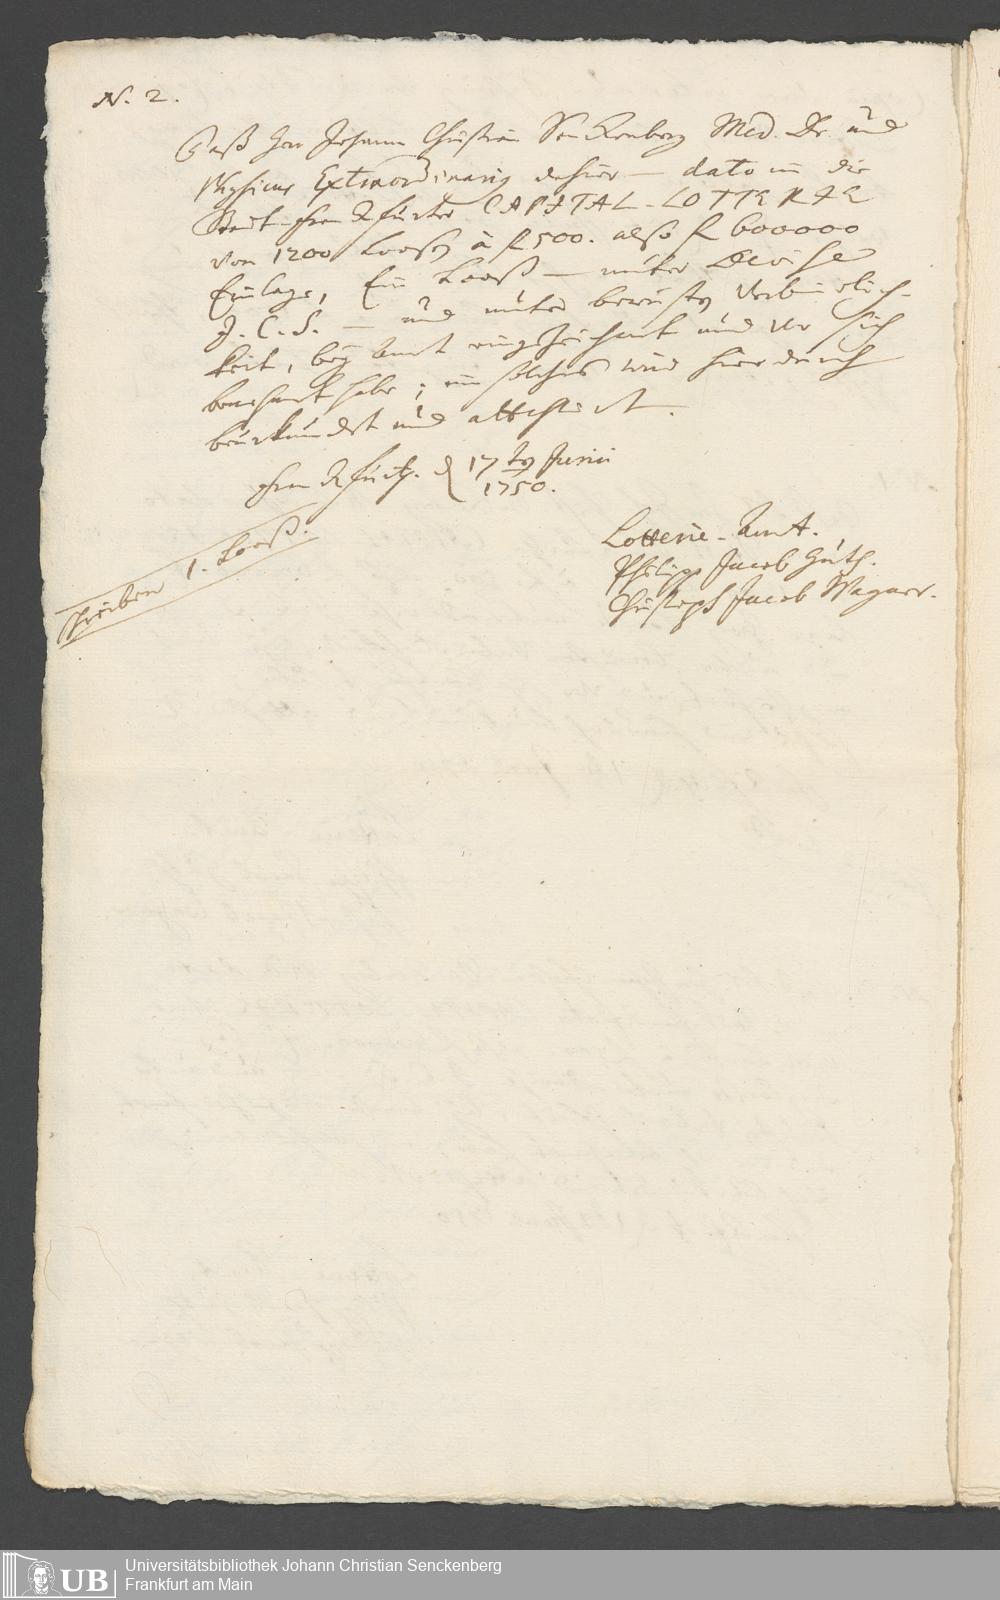 N. 2.
Daß Herr Johann Christian Senckenberg Med. Dr. und
Physicus Extraordinarius dahier – dato in die
Stadt-Franckfurter CAPITAL-LOTTERIE
von 1200 Looßen à fl 500. also fl 600000
Einlage, Ein Looß – unter Devise
J. C. S. – und unter bewuster Verbindlich-
keit, bey Amt eingezeichnet und vor sich
behauet habe; ein solches wird hierdurch
beurkundet und attestirt.
Franckfurth. d 17ten Junii
1750.
Lotterie-Amt.
Philipp Jacob Guth.
Christoph Jacob Wagner.
1. Looß.
Universitätsbibliothek Johann Christian Senckenberg
Frankfurt am Main
UB